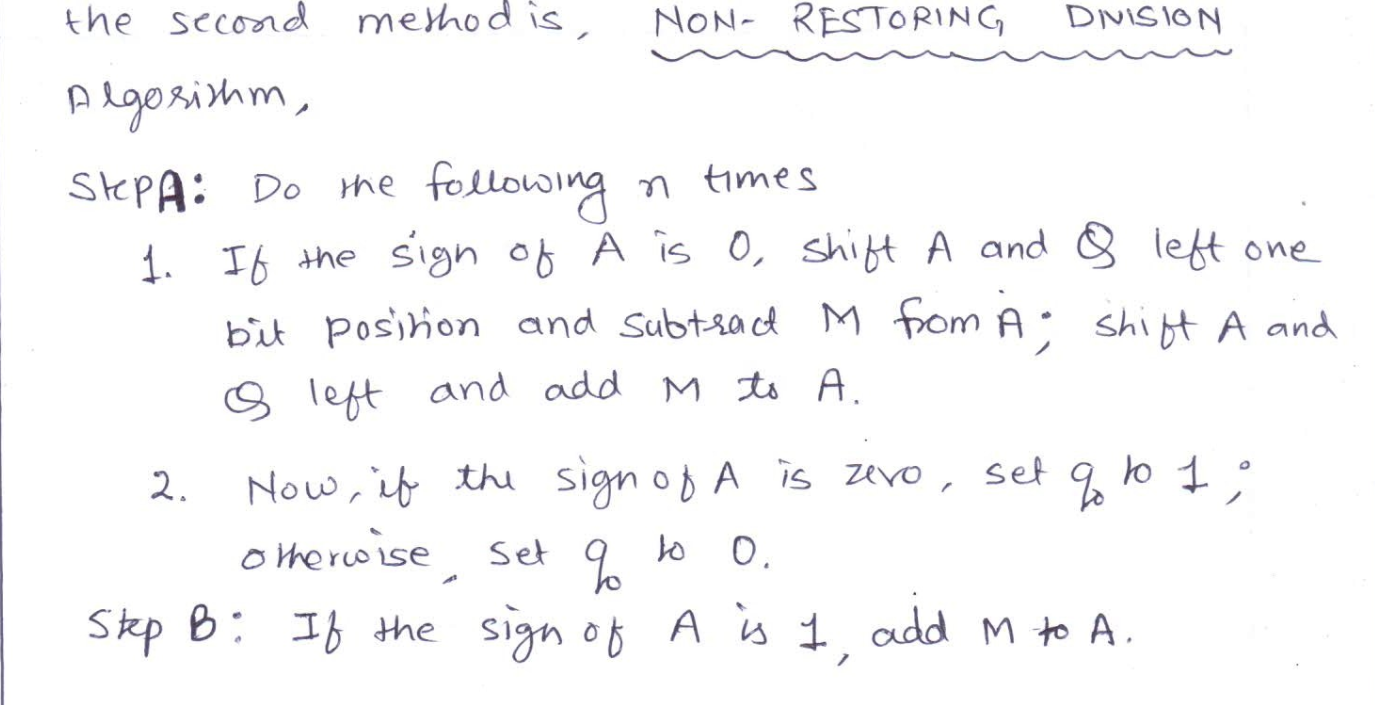 the second method is, NON- RESTORING DIVISION
Algorithm,
Step A: Do the following n times
1. If the sign of A is 0, shift A and Q left one
bit position and subtract M from A; shift A and
Q left and add M to A.
2. Now, if the sign of A is zero, set q₀ to 1;
otherwise, set q₀ to 0.
Step B: If the sign of A is 1, add M to A.